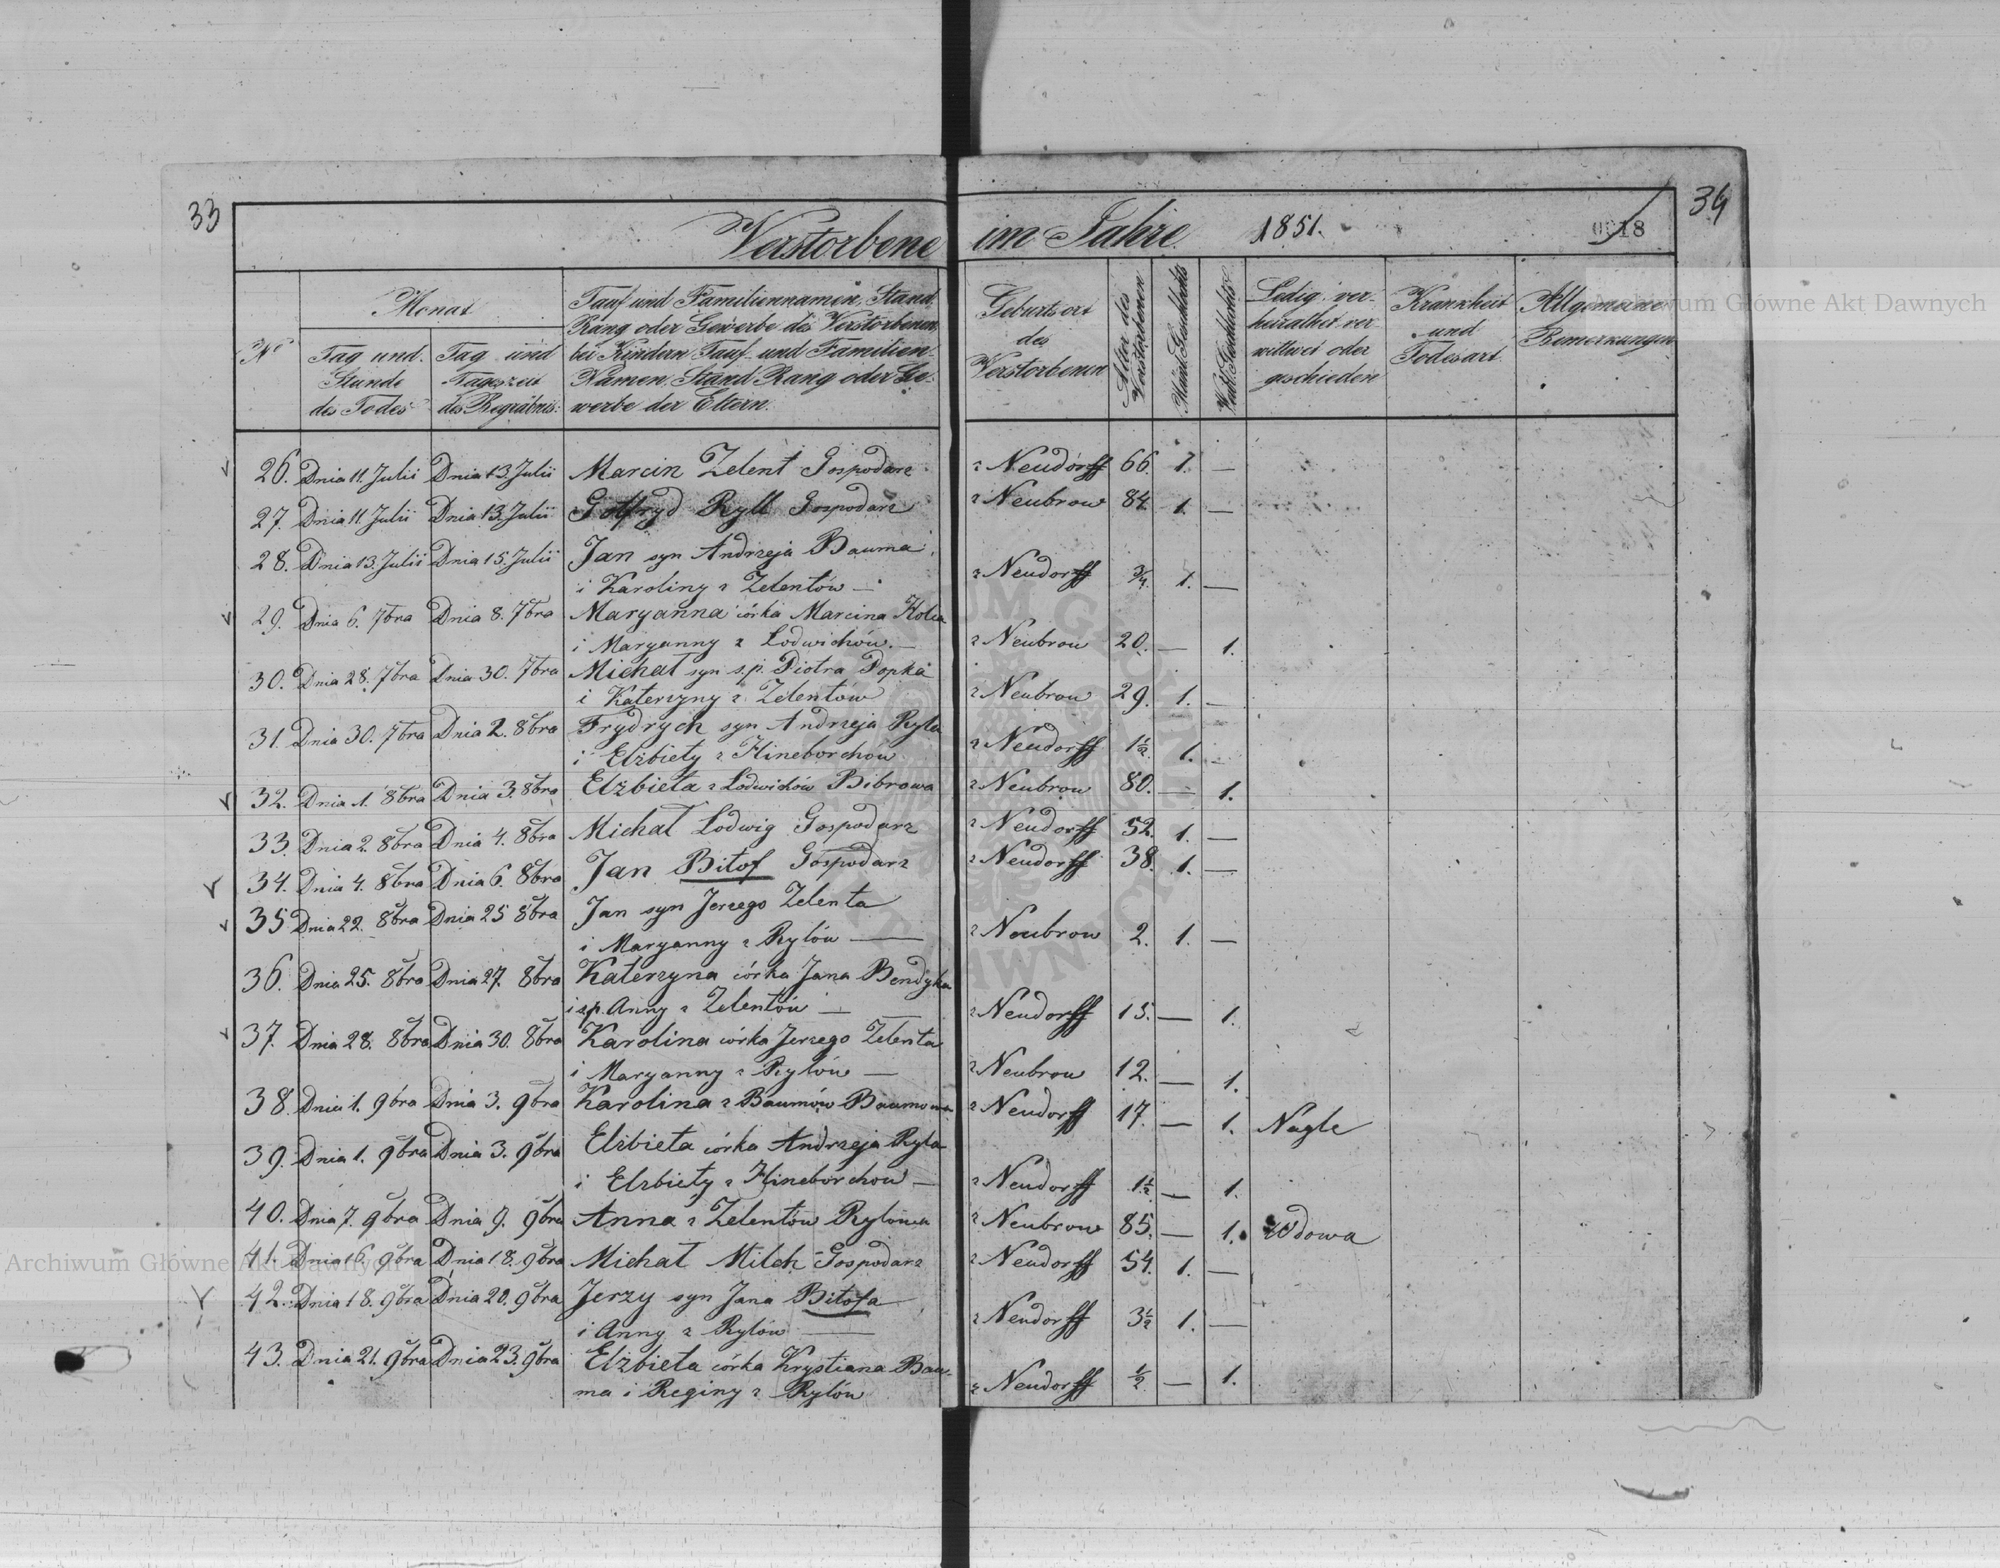 33
34
Verstorbene im Jahre 1851.
0018
Archiwum Główne Akt Dawnych
Monat
Tauf und Familiennamen, Stand,
Rang oder Gewerbe des Verstorbenen,
bei Kindern Tauf- und Familien-
Namen, Stand Rang oder Ge-
werbe der Eltern.
No
Tag und
Stunde
des Todes
Tag und
Tageszeit
des Begräbnis.
Geburtsort
des
Verstorbenen
Alter des
Verstorbenen
Männl. Geschlechts
Weibl. Geschlechts
Ledig, ver-
heirathet ver-
wittwet oder
geschieden
Krankheit
und
Todesart
Allgemeine
Bemerkungen
26. Dnia 11. Julii Dnia 13. Julii Marcin Zelent Gospodarz z Neudorff 66 1. —
27. Dnia 11. Julii Dnia 13. Julii Gotfryd Ryll Gospodarz z Neubrow 84. 1. —
28. Dnia 13. Julii Dnia 15. Julii Jan syn Andrzeja Bauma
i Karoliny z Zelentów — z Neudorff 3/4 1. —
29. Dnia 6. 7bra Dnia 8. 7bra Maryanna córka Marcina
i Maryanny z Lodwichów. — z Neubrow 20. — 1.
30. Dnia 28. 7bra Dnia 30. 7bra Michał syn s.p. Piotra Popka
i Katerzyny z Zelentów z Neubrow 29. 1. —
31. Dnia 30. 7bra Dnia 2. 8bra Frydrych syn Andrzeja Ryla
i Elżbiety z Hineborchów z Neudorff 1½ 1. —
32. Dnia 1. 8bra Dnia 3. 8bra Elżbieta z Lodwichów Bibrowa z Neubrow 80. — 1.
33. Dnia 2. 8bra Dnia 4. 8bra Michał Lodwig Gospodarz z Neudorff 52. 1. —
34. Dnia 4. 8bra Dnia 6. 8bra Jan Bitof Gospodarz z Neudorff 38. 1. —
35 Dnia 22. 8bra Dnia 25 8bra Jan syn Jerzego Zelenta
i Maryanny z Rylów — z Neubrow 2. 1. —
36. Dnia 25. 8bra Dnia 27. 8bra Katerzyna córka Jana Bendyka
i s.p. Anny z Zelentów — z Neudorff 15. — 1.
37. Dnia 28. 8bra Dnia 30. 8bra Karolina córka Jerzego Zelenta
i Maryanny z Rylów — z Neubrow 12. — 1.
38. Dnia 1. 9bra Dnia 3. 9bra Karolina z Baumów Baumowa z Neudorff 17. — 1. Nagle
39. Dnia 1. 9bra Dnia 3. 9bra Elżbieta córka Andrzeja Ryla
i Elżbiety z Hineborchow — z Neudorff 1½ — 1.
40. Dnia 7. 9bra Dnia 9. 9bra Anna z Zelentów Rylowa z Neubrow 85. — 1. Wdowa
41. Dnia 16. 9bra Dnia 18. 9bra Michał Milch Gospodarz z Neudorff 54. 1. —
42. Dnia 18. 9bra Dnia 20. 9bra Jerzy syn Jana Bitofa
i Anny z Rylów — z Neudorff 3½ 1. —
43. Dnia 21. 9bra Dnia 23. 9bra Elżbieta córka Krystiana Bau-
ma i Reginy z Rylów z Neudorff ½ — 1.
Archiwum Główne Akt Dawnych